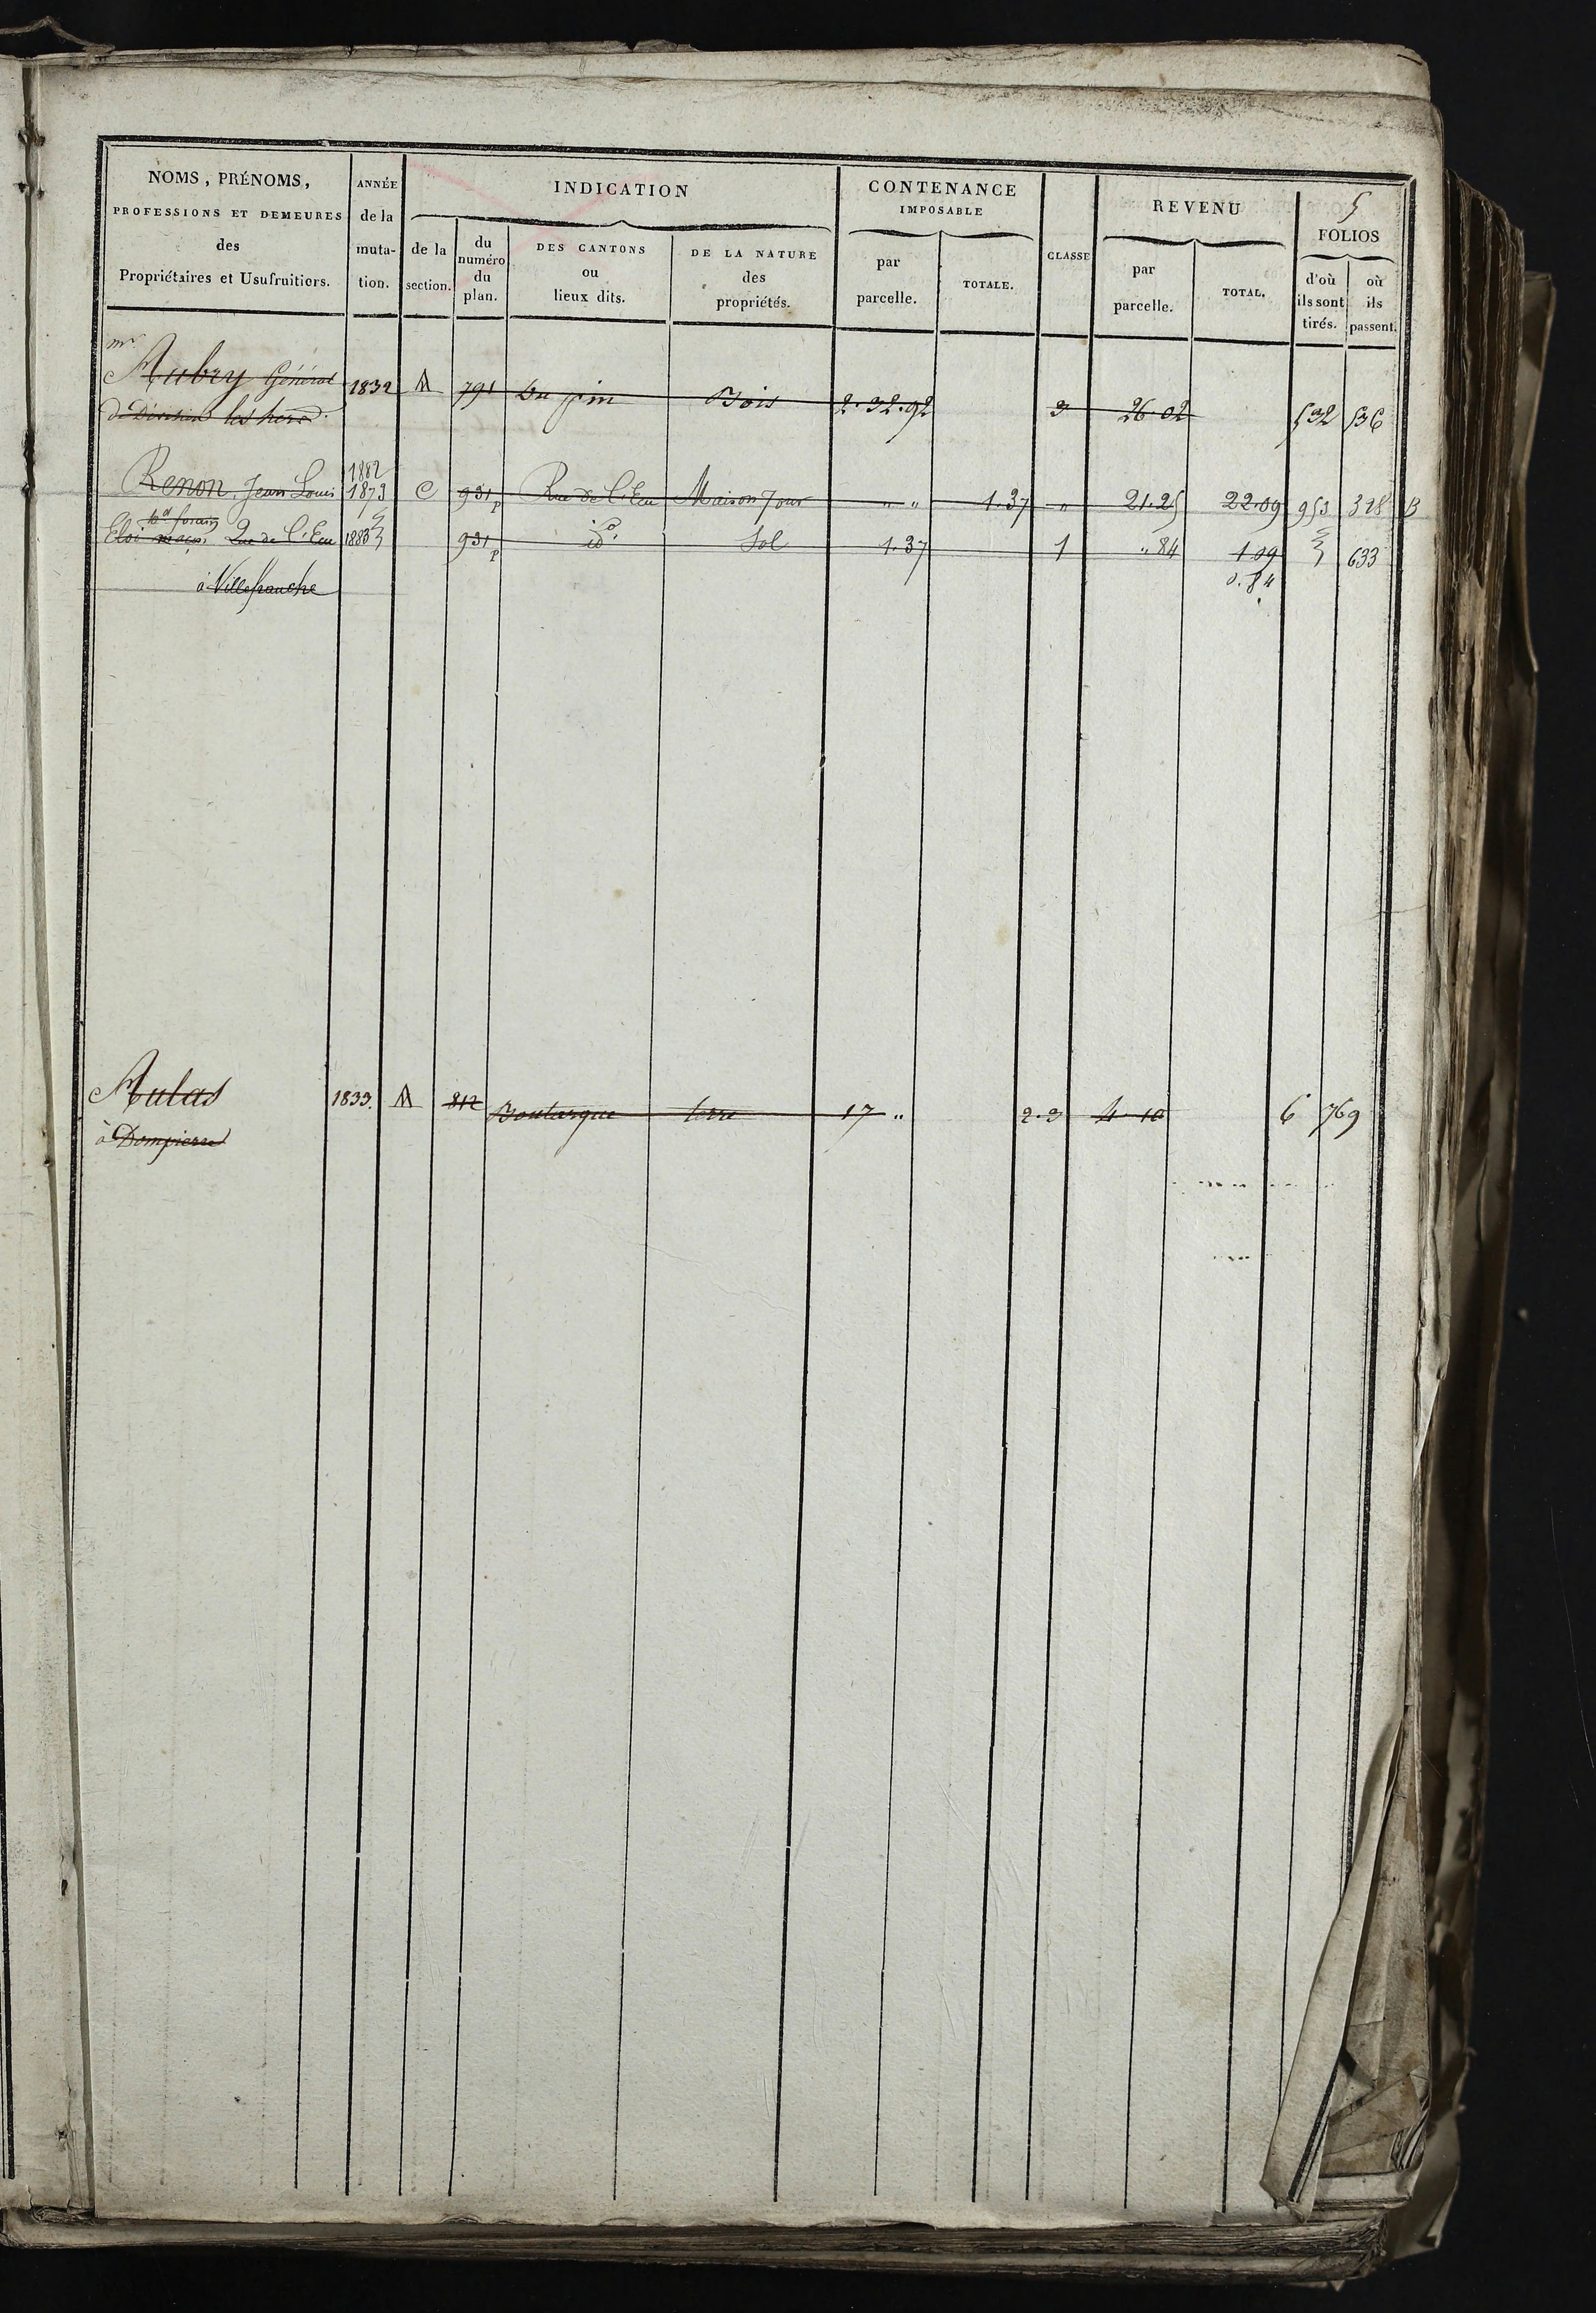 5
NOMS, PRÉNOMS,
PROFESSIONS ET DEMEURES
des
Propriétaires et Usufruitiers.
ANNÉE
de la
muta-
tion.
INDICATION
de la
section.
du
numéro
du
plan.
DES CANTONS
ou
lieux dits.
DE LA NATURE
des
propriétés.
CONTENANCE
IMPOSABLE
par
parcelle.
TOTALE.
CLASSE
REVENU
par
parcelle.
TOTAL.
FOLIOS
d'où
ils sont
tirés.
où
ils
passent.
Mr
Aubry Général 1832 A 791 Du pin Bois 2.32.92 3 26.02 532 536
de Division les herd.
1882
Renon, Jean Louis 1873 C 931p Rue de l'Ecu Maison 7 ouv " " 1.37 " 21.25 22.09 953 328 B
md forain
Eloi maçon Rue de l'Ecu 1883 931p id. Sol 1.37 1 " 84 1.09 633
à Villefranche 0.84
Aulas 1833. A 812 Boutargue terre 17 " 2.3 4.10 6 769
à Dompierre